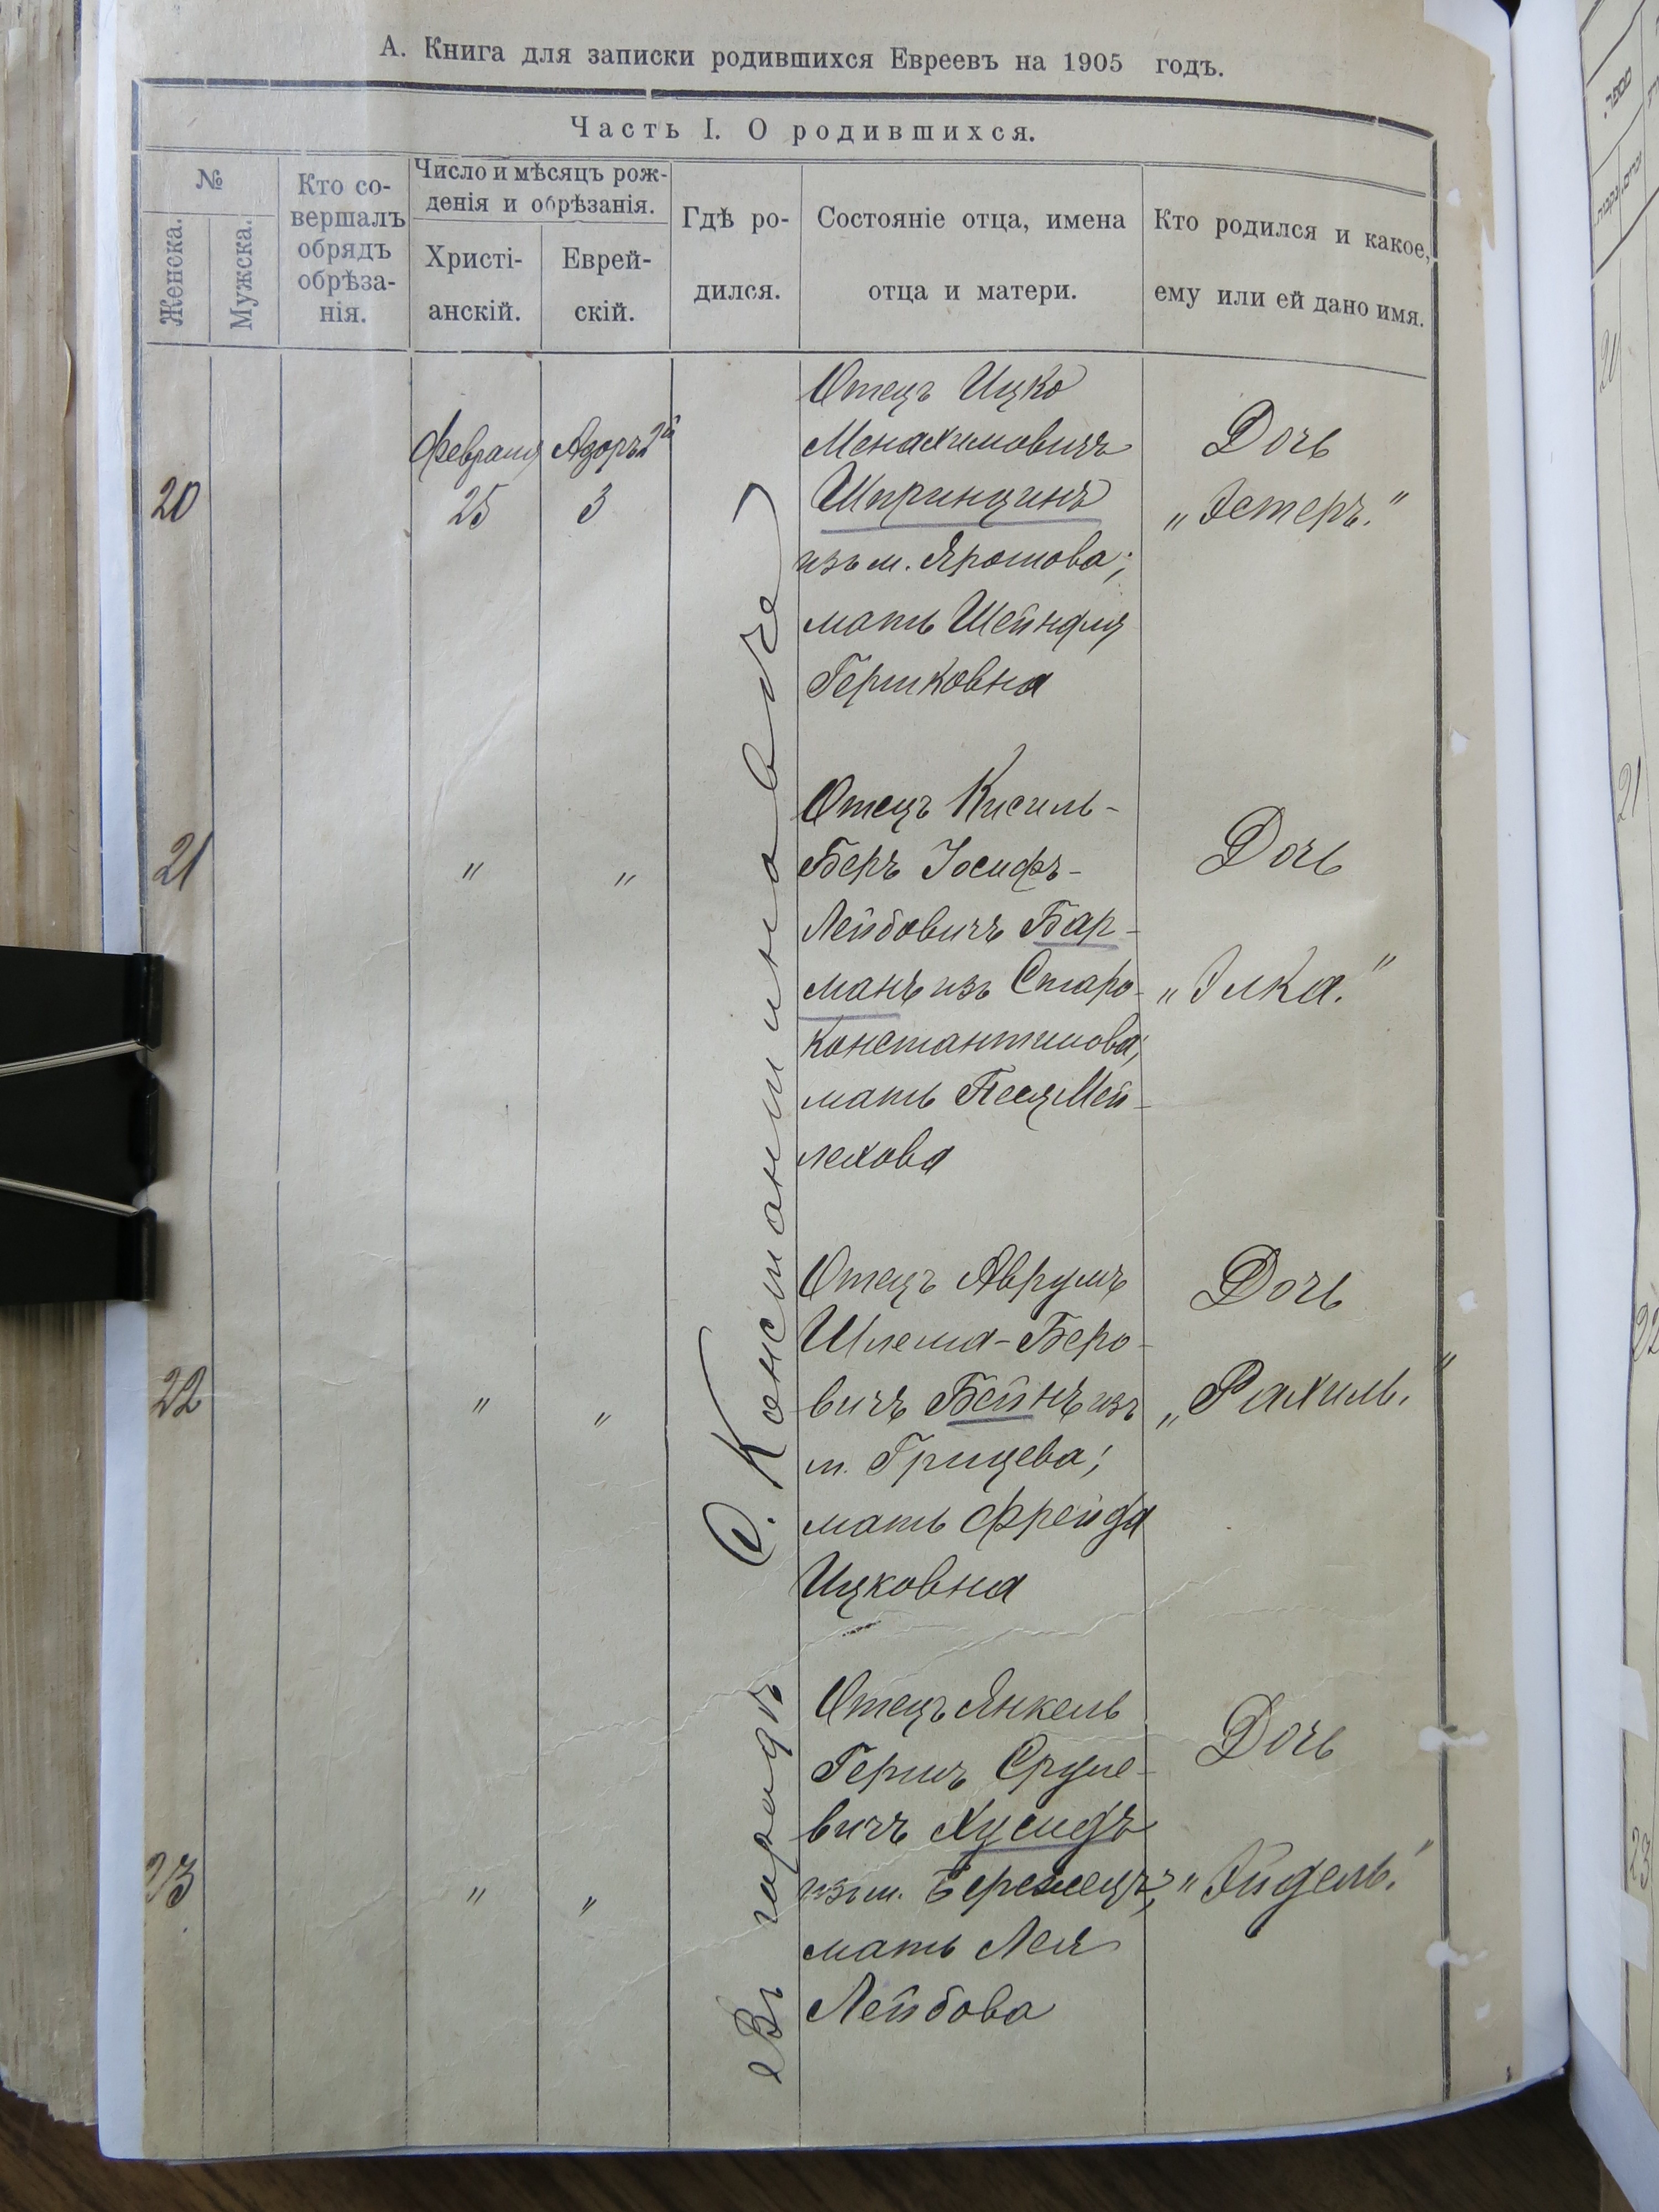 А. Книга для записки родившихся Евреевъ на 1905 годъ.
Часть I. О родившихся.
№
Женска.
Мужска.
Кто со-
вершалъ
обрядъ
обрѣза-
нія.
Число и мѣсяцъ рож-
денія и обрѣзанія.
Христі-
анскій.
Еврей-
скій.
Гдѣ ро-
дился.
Состояніе отца, имена
отца и матери.
Кто родился и какое,
ему или ей дано имя.
Въ городѣ С. Константиновѣ
20
Февраля
25
Адоръ 2й
3
Отецъ Ицко
Менахимовичъ
Шпринцинъ
изъ м. Ярошова;
мать Шейндля
Гершковна
Дочь
„Эстеръ.“
21
"
"
Отецъ Кисиль-
Беръ Іосифъ-
Лейбовичъ Бар-
манъ изъ Старо-
константинова;
мать Песя Мей-
лехова
Дочь
„Элка.“
22
"
"
Отецъ Аврумъ
Шлема-Беро-
вичъ Бейнъ изъ
м. Грицева;
мать Фрейда
Ицковна
Дочь
„Рахиль.“
23
"
"
Отецъ Янкель
Гершъ Сруле-
вичъ Хусидъ
изъ м. Бережецъ;
мать Лея
Лейбова
Дочь
„Эйдель.“
20
21
22
23